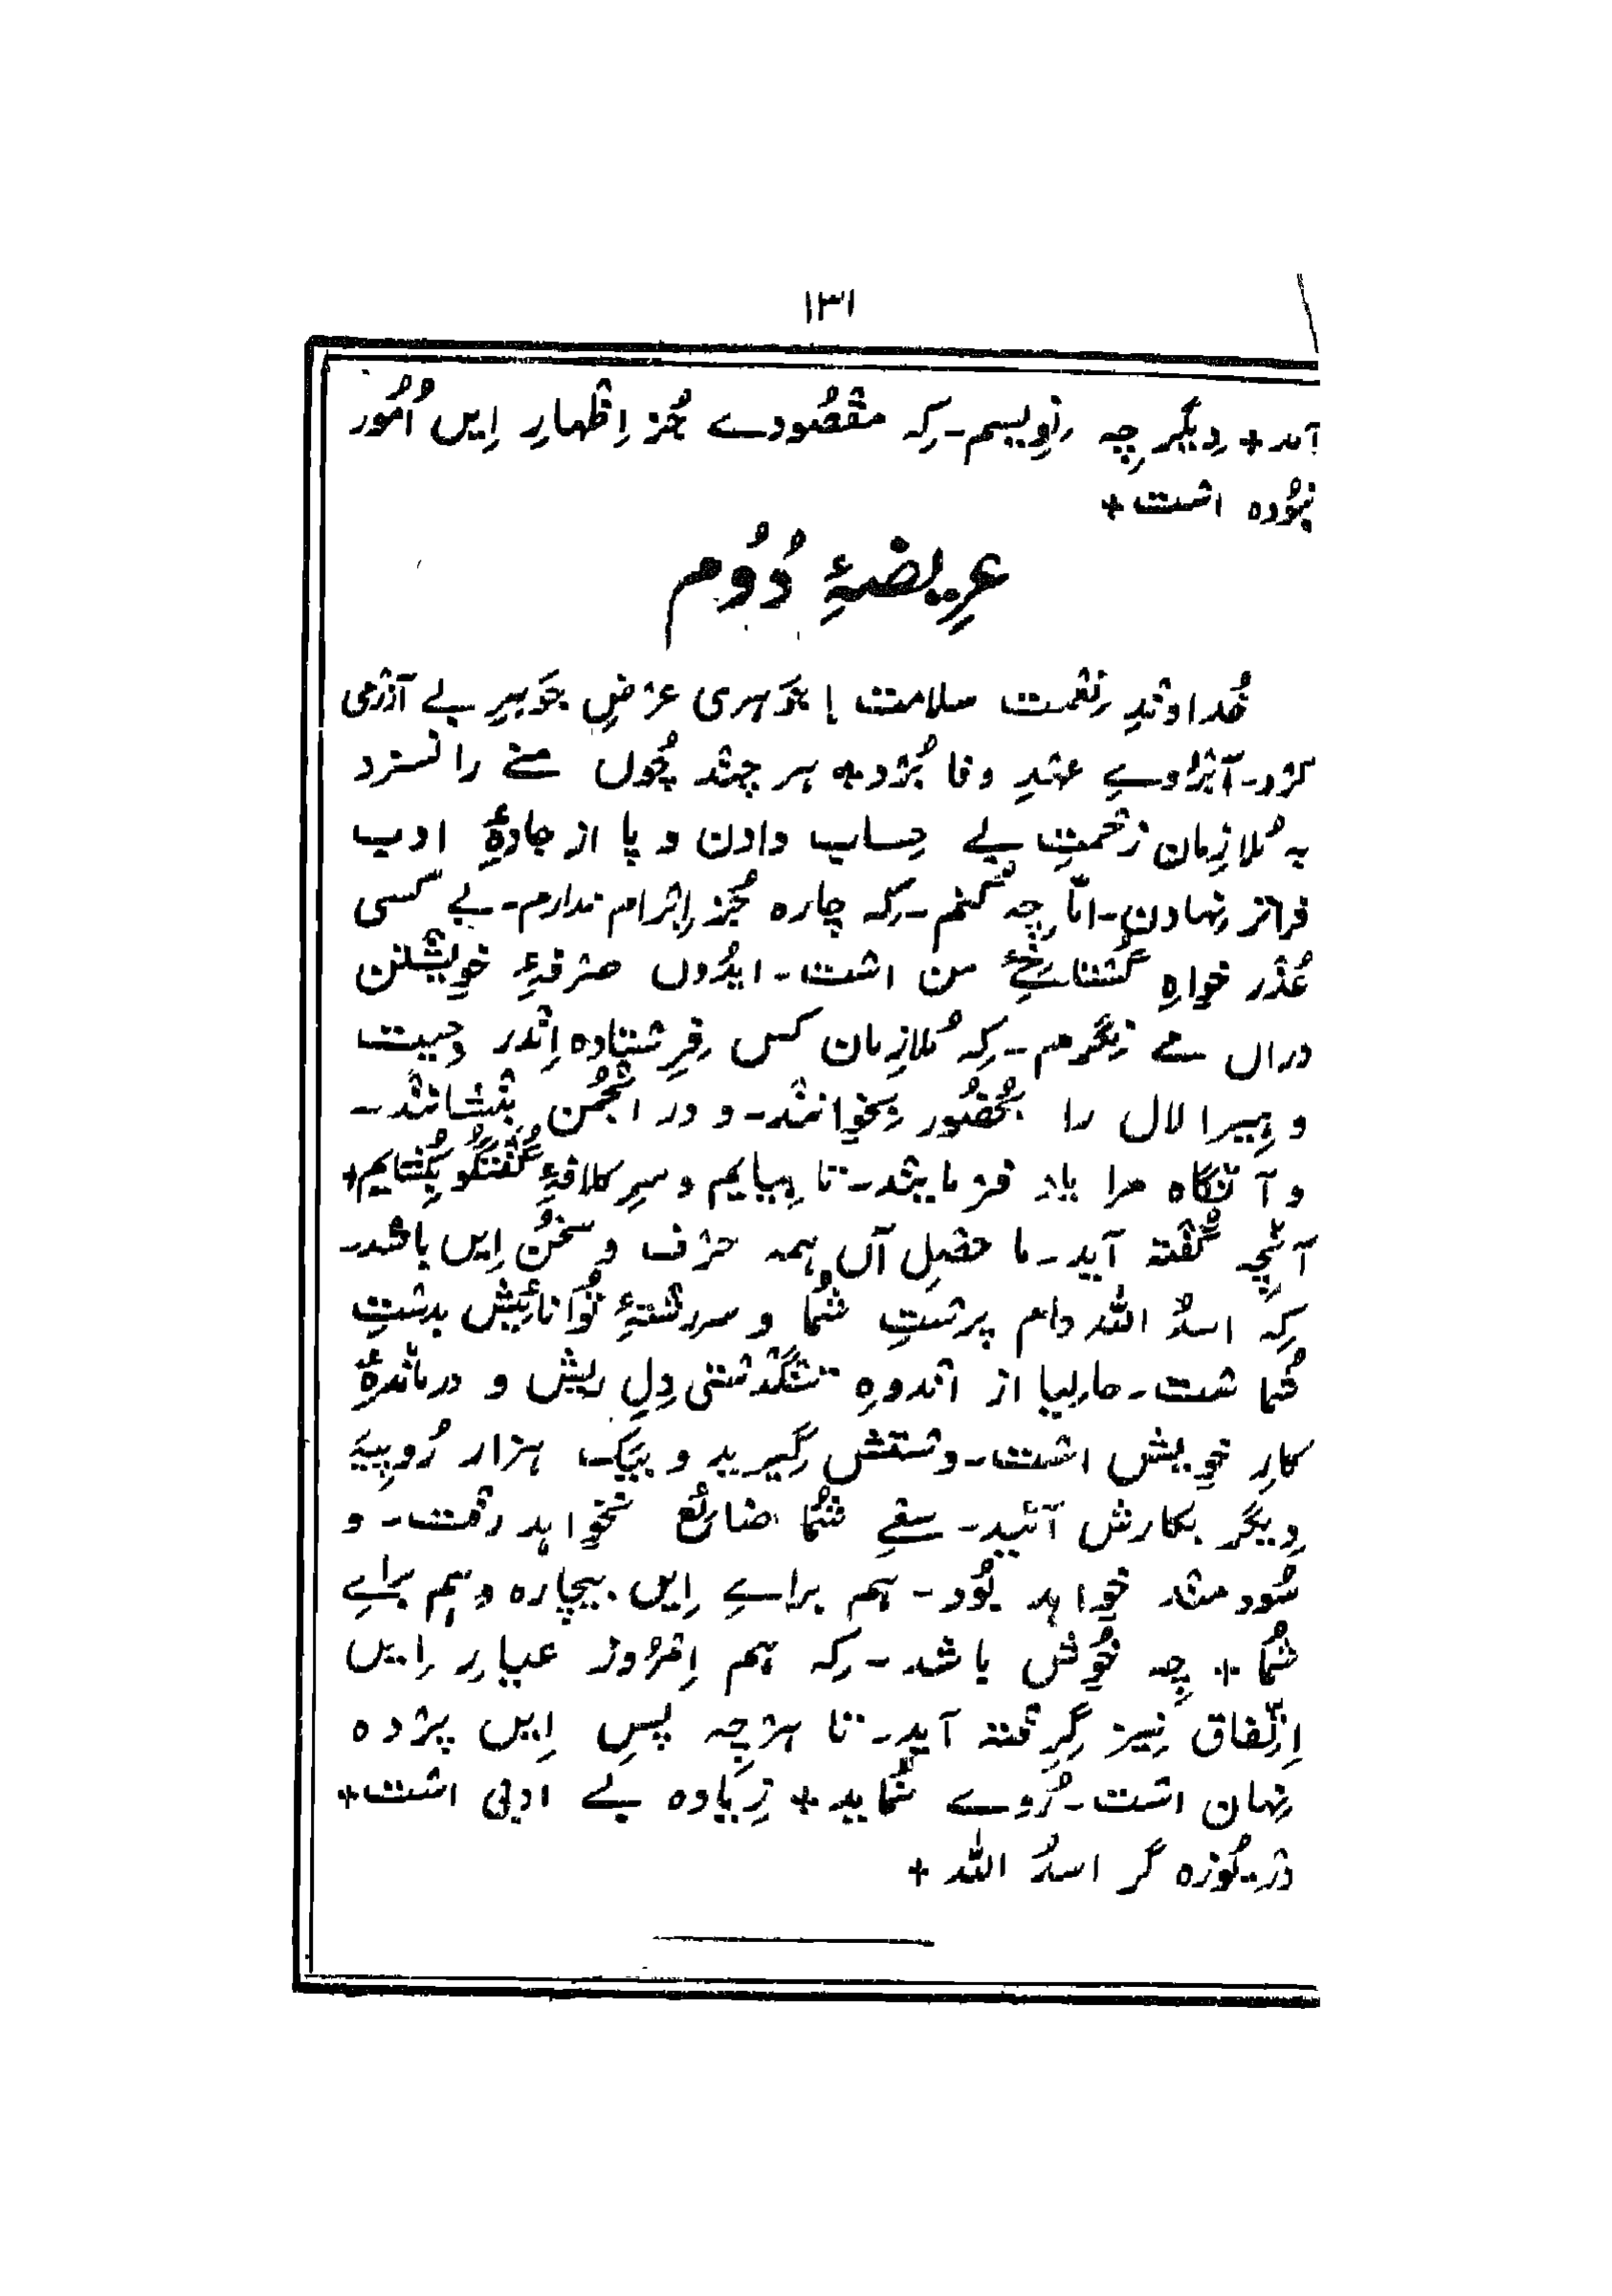 ۱۳۱
آمد + دِیگر چِہ نِویسم۔ کِہ مقصُودے جُز اِظہارِ اِیں اُمُور
نبُودہ اشت +
عرِیضۂِ دُوُم
خُداوندِ نِعْمت سلامت! جَوہری عرْضِ جَوہرِ بے آزرمی
کرْد۔ آبرُوے عہْدِ وفا بُرْد + ہر چنْد چُوں منے را نسزد
بہ مُلازِمان زحْمتِ بے حِساب دادن و پا از جادۂِ ادب
فراتر نِہادن۔ امّا چِہ کُنم۔ کِہ چارہ جُز اِبْرام ندارم۔ بے کسی
عُذْر خواہِ گُستاخیِٔ من اشت۔ ایدُوں صرْفۂِ خویشْتن
دراں مے نِگرم۔ کِہ مُلازِمان کس فِرِشتادہ اِنْدر وجیت
و ہِیرا لال را بحُضُور بِخوانند۔ و در انْجُمن بِنْشانند۔
و آنگاہ مرا یاد فرْمایند۔ تا بِیایم و سرِ کلافۂِ گُفْتگُو بِکُشایم +
آنْچِہ گُفْتہ آید۔ ماحصلِ آں ہمہ حرْف و سخُن اِیں باشد۔
کِہ اسدُ اللہ دام پرشتِ شُما و سررِشْتۂِ تُوانائیش بدشتِ
شُما شت۔ حالِیا از انْدوہِ تنْگدشتی دِل رِیش و درمانْدۂِ
کارِ خویش اشت۔ دشتش گِیرید و بیک ہزار رُوپِیۂ
دِیگر بکارش آئید۔ سعْیِ شُما ضائع نخواہد رفْت۔ و
سُودمنْد خواہد بُود۔ ہم براے اِیں بیچارہ و ہم براے
شُما + چِہ خُوش باشد۔ کِہ ہم اِمْرُوز عیارِ اِیں
اِتِّفاق نِیز گِرِفْتہ آید۔ تا ہرْچِہ پسِ اِیں پرْدہ
نِہان اشت۔ رُوے نُماید + زِیادہ بے ادبی اشت +
درْیُوزہ گر اسدُ اللہ +